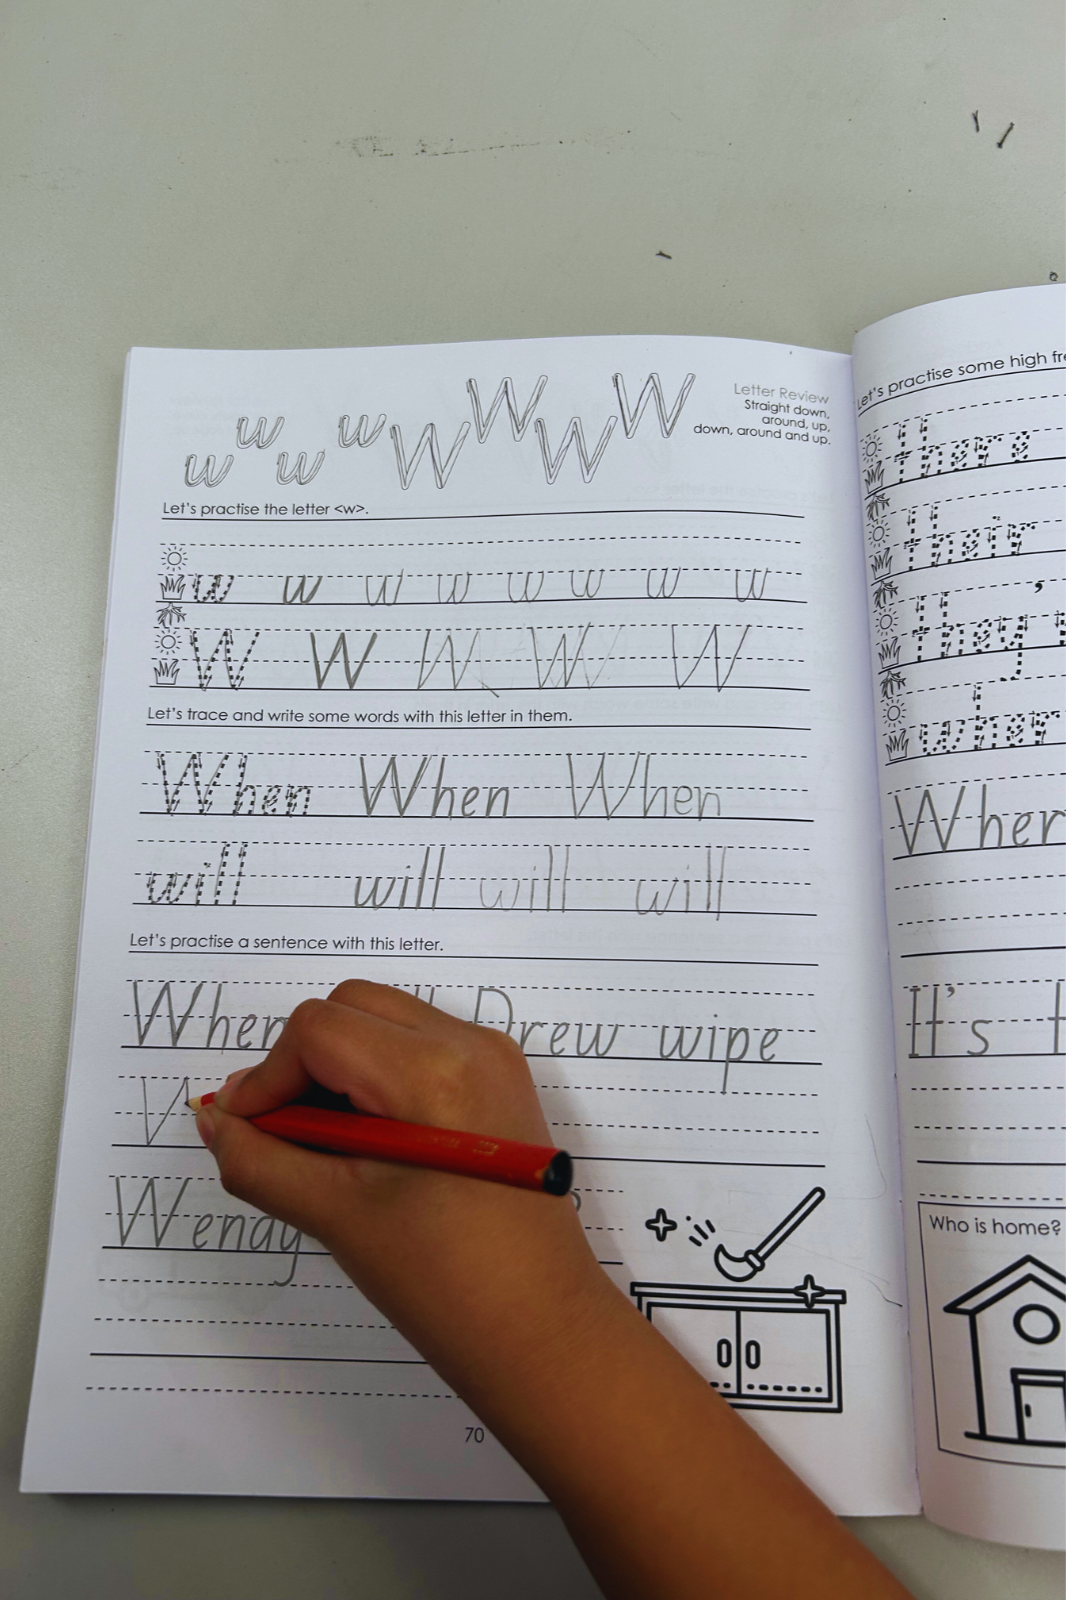 w w w w W W W W
Letter Review
Straight down,
around, up,
down, around and up.
Let's practise the letter <w>.
w w w w w w w w
W W W W W
Let's trace and write some words with this letter in them.
When When When
will will will will
Let's practise a sentence with this letter.
When Drew wipe
70
Let's practise some high
there
their
It's
Who is home?